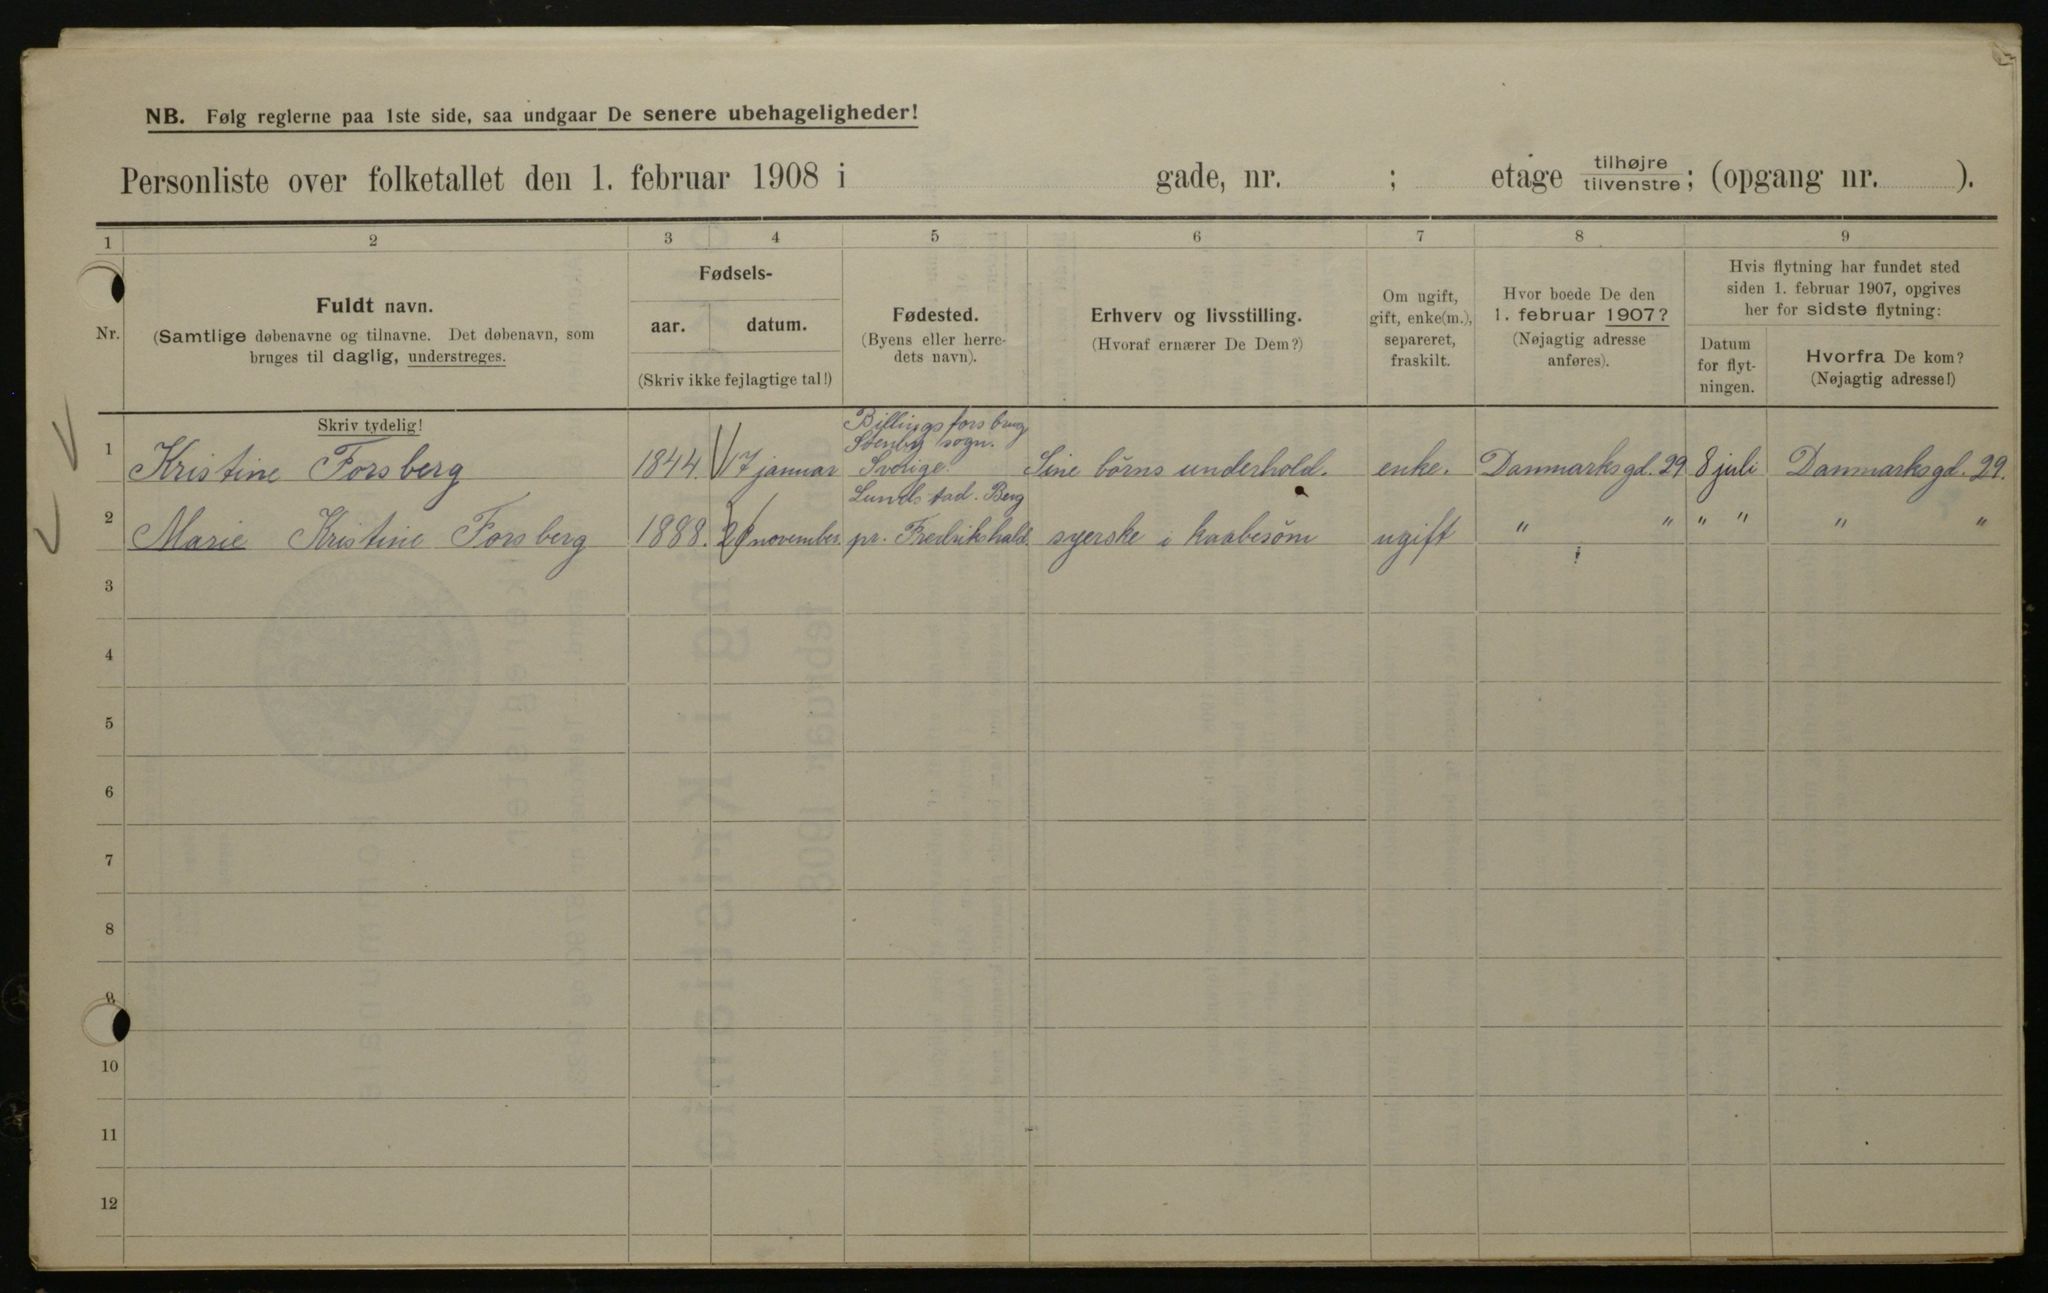 NB. Følg reglerne paa 1ste side, saa undgaar De senere ubehageligheder!
Personliste over folketallet den 1. februar 1908 i gade, nr. ; etage tilhøjre/tilvenstre; (opgang nr. ).
1 2 3 4 5 6 7 8 9
Nr.
Fuldt navn.
(Samtlige døbenavne og tilnavne. Det døbenavn, som
bruges til daglig, understreges.
Fødsels-
aar. datum.
(Skriv ikke fejlagtige tal!)
Fødested.
(Byens eller herre-
dets navn).
Erhverv og livsstilling.
(Hvoraf ernærer De Dem?)
Om ugift,
gift, enke(m.),
separeret,
fraskilt.
Hvor boede De den
1. februar 1907?
(Nøjagtig adresse
anføres).
Hvis flytning har fundet sted
siden 1. februar 1907, opgives
her for sidste flytning:
Datum
for flyt-
ningen.
Hvorfra De kom?
(Nøjagtig adresse!)
Skriv tydelig!
Billingsfors brug
Stenby sogn.
1 Kristine Forsberg 1844. 17 januar Sverige. Sine børns underhold. enke. Danmarksgd. 29 8 juli Danmarksgd. 29.
Lundstad. Berg
2 Marie Kristine Forsberg 1888. november. pr. Fredrikshald. syerske i kaabesøm ugift " " " " " "
3
4
5
6
7
8
9
10
11
12